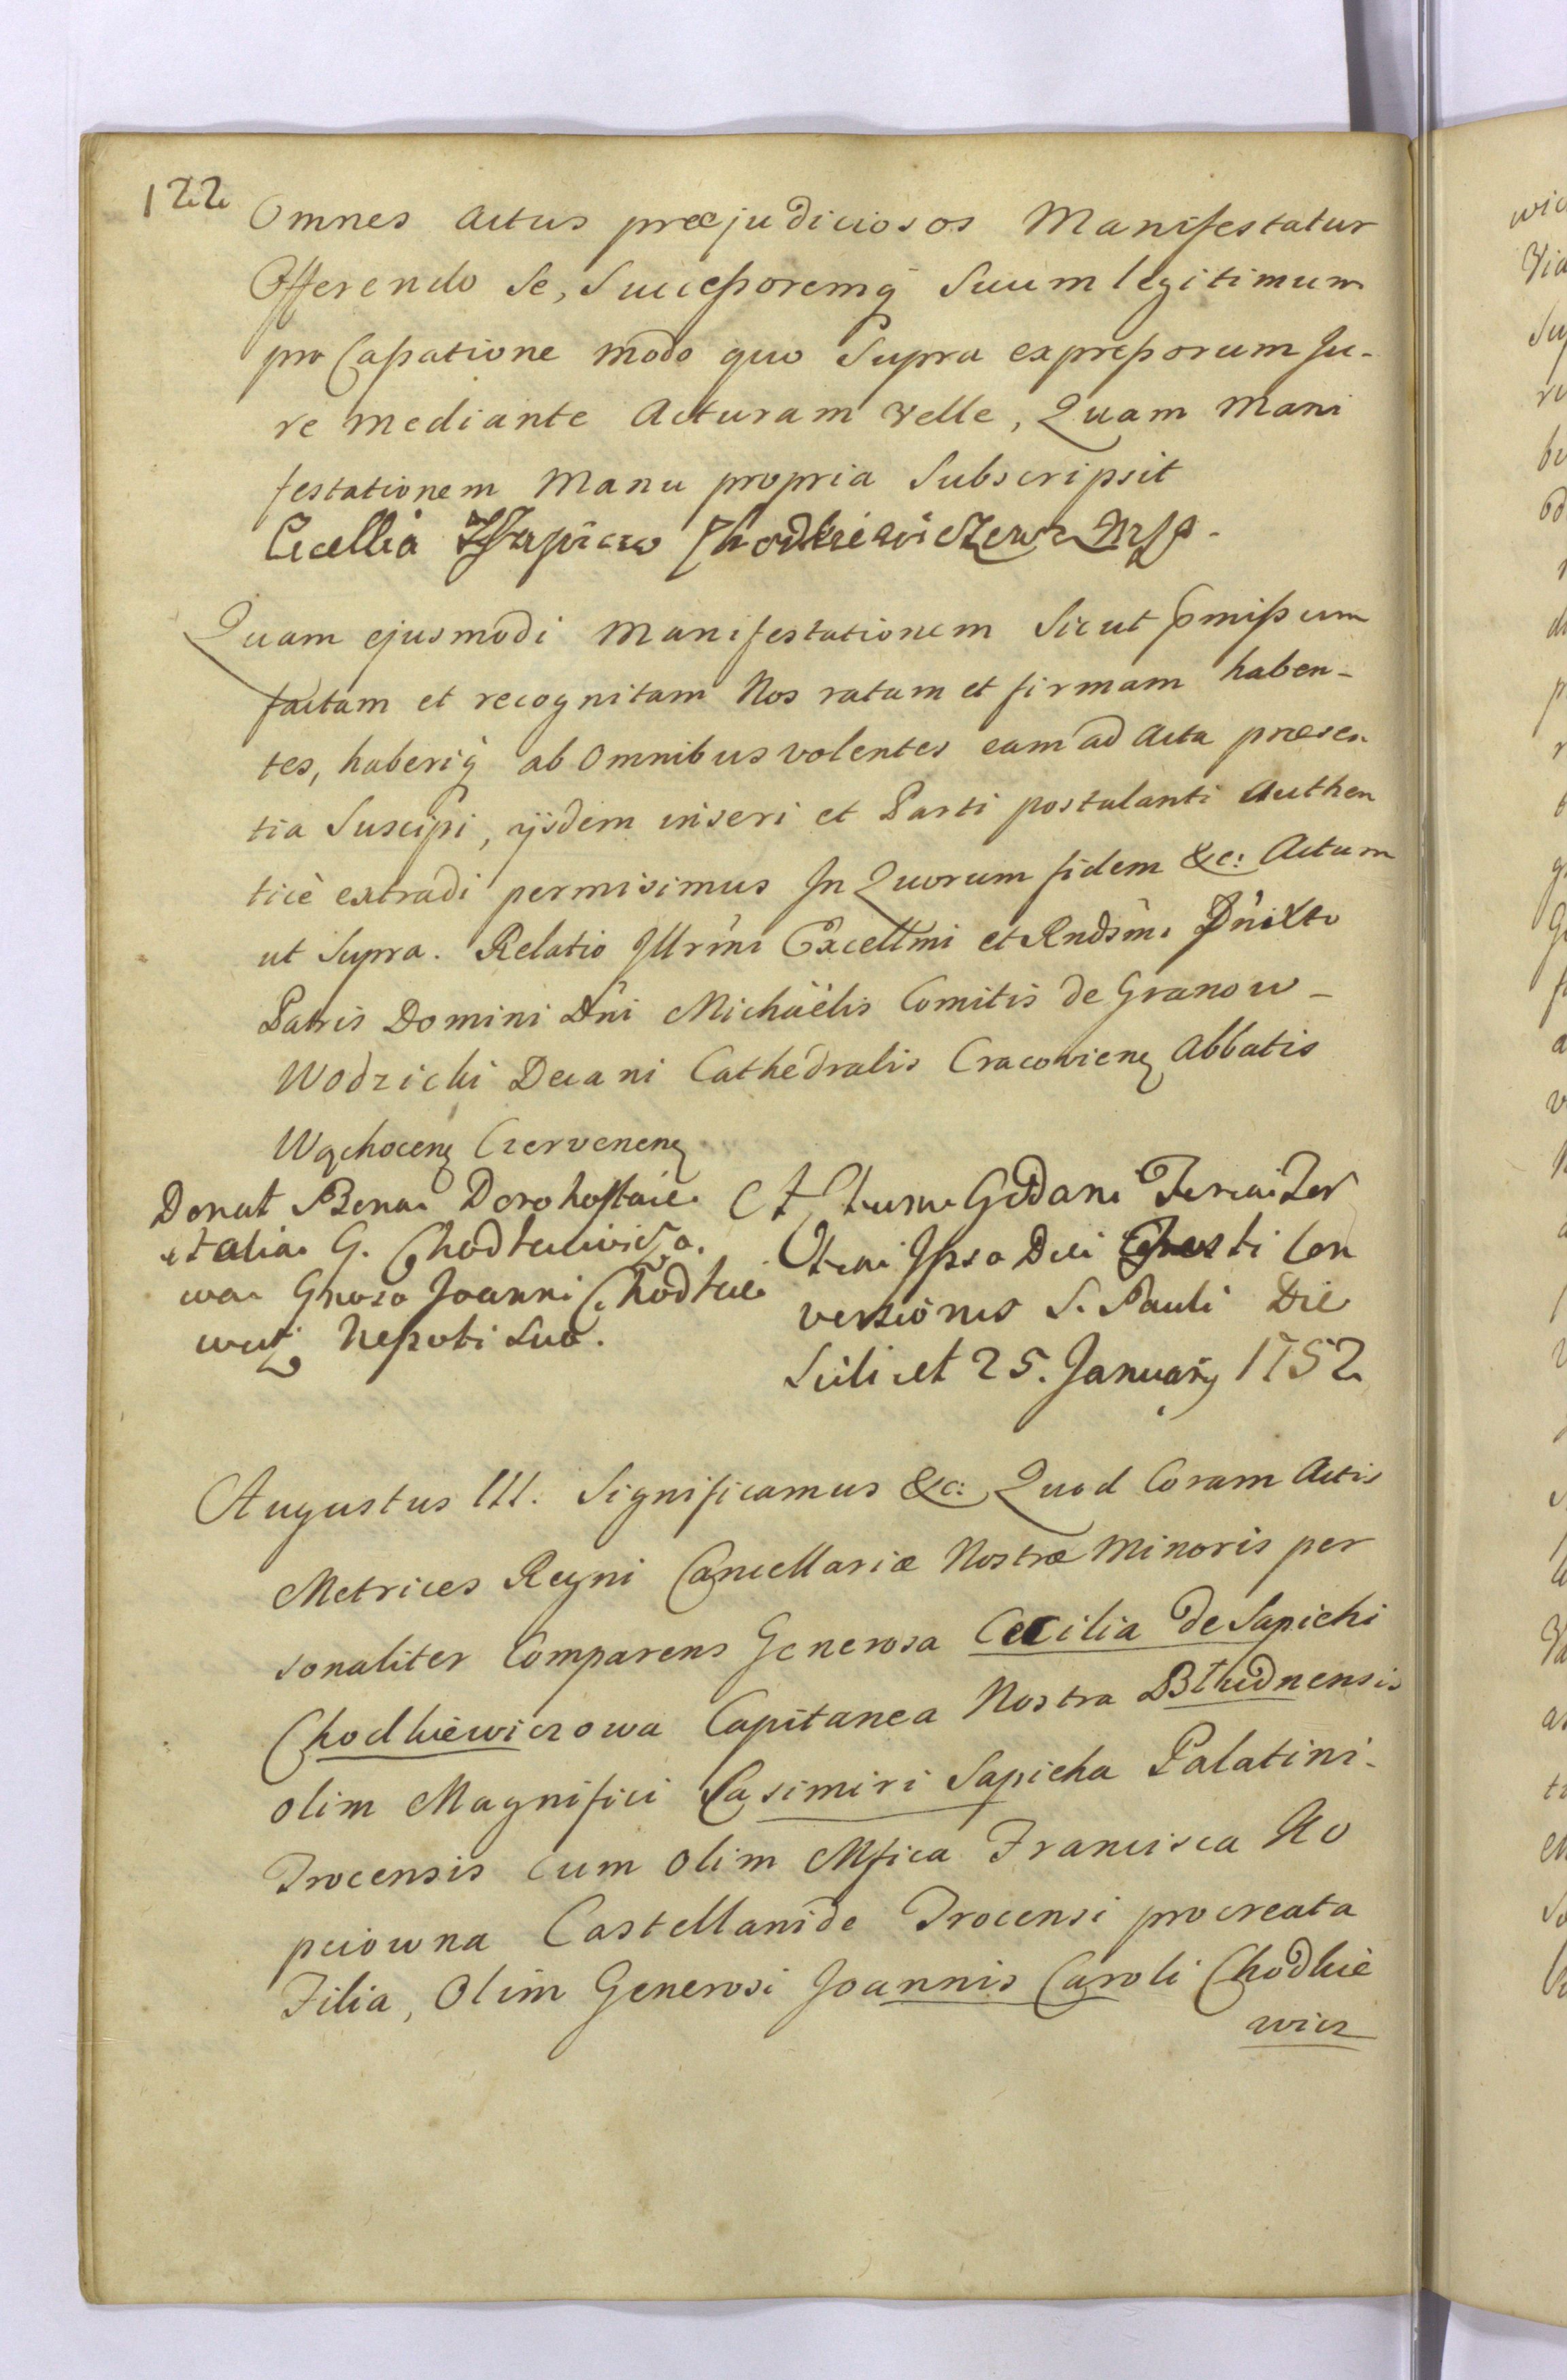 122
Omnes Actus præjudiciosos Manifestatur
Offerendo Se, Successoremq Suum legitimum
pro Cassatione modo quo Supra expressorum Ju-
re mediante Acturam velle, Quam Mani
festationem Manu propria Subscripsit
Cecellia Chodkiewiczewa
Quam ejusmodi Manifestationem Sicut pmissum
factam et recognitam Nos ratam et firmam haben-
tes, haberiq ab Omnibus volentes eam ad Acta præsen
tia Suscipi, ijsdem inseri et Parti postulanti Authen
ticè extradi permisimus In Quorum fidem &c: Actum
ut Supra. Relatio Illrmi Excellmi et Rndsmi
Patris Domini Dni Michäelis Comitis de Granow-
Wodzicki Decani Cathedralis Cracovienq Abbatis
Wąchocenq Czervenenq
Donat Bona Dorohostaie
et alia G. Chodkiewiczo.
wa Gnoso Joanni Chodkie
wicz Nepoti Suo.
Actum Gedani Feria Ter
tia Ipso Die Festi Con
versionis S. Pauli Die
Scilicet 25. Januarij 1752
Augustus III. Significamus &c: Quod Coram Actis
Metrices Regni Cancellariæ Nostræ Minoris per
sonaliter Comparens Generosa Cecilia de Sapiehi
Chodkiewiczowa Capitanea Nostra Błudnensis
olim Magnifici Casimiri Sapieha Palatini-
Trocensis Cum olim Mfica Francisca Ko
pciowna Castellanide Trocensi procreata
Filia, Olim Generosi Joannis Caroli Chodkie
wicz